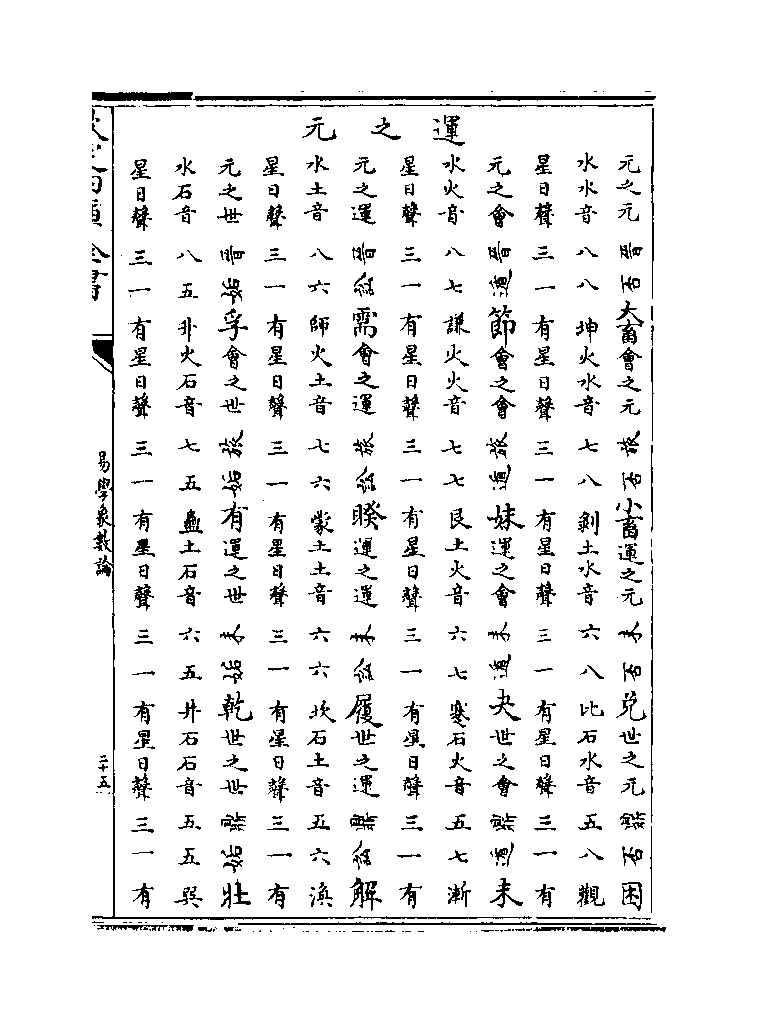 運之元
元之元晋否大畜會之元旅否小畜運之元未否兌世之元鼎否困
水水音八八坤火水音七八剝土水音六八比石水音五八觀
星日聲三一有星日聲三一有星日聲三一有星日聲三一有
元之會晋遁節會之會旅遁妹運之會未遁夬世之會鼎遁未
水火音八七謙火火音七七艮土火音六七蹇石火音五七漸
星日聲三一有星日聲三一有星日聲三一有星日聲三一有
元之運晋訟需會之運旅訟睽運之運未訟履世之運鼎訟解
水土音八六師火土音七六蒙土土音六六坎石土音五六渙
星日聲三一有星日聲三一有星日聲三一有星日聲三一有
元之世晋姤孚會之世旅姤有運之世未姤乾世之世鼎姤壯
水石音八五升火石音七五蠱土石音六五井石石音五五巽
星日聲三一有星日聲三一有星日聲三一有星日聲三一有
欽定四庫全書
易學象數論
二十五